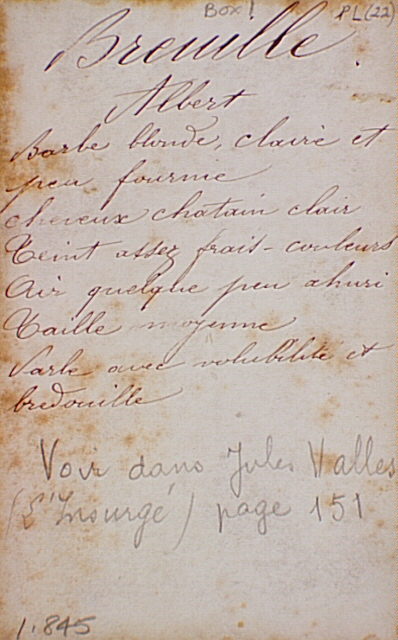 Box! PL(22)
Breuillé.
Albert
Barbe blonde, claire et
peu fournie
cheveux chatain clair
Teint assez frais - couleurs
Air quelque peu ahuri
Taille moyenne
Parle avec volubilité et
bredouille
Voir dans Jules Valles
(L'Insurgé) page 151
1.845